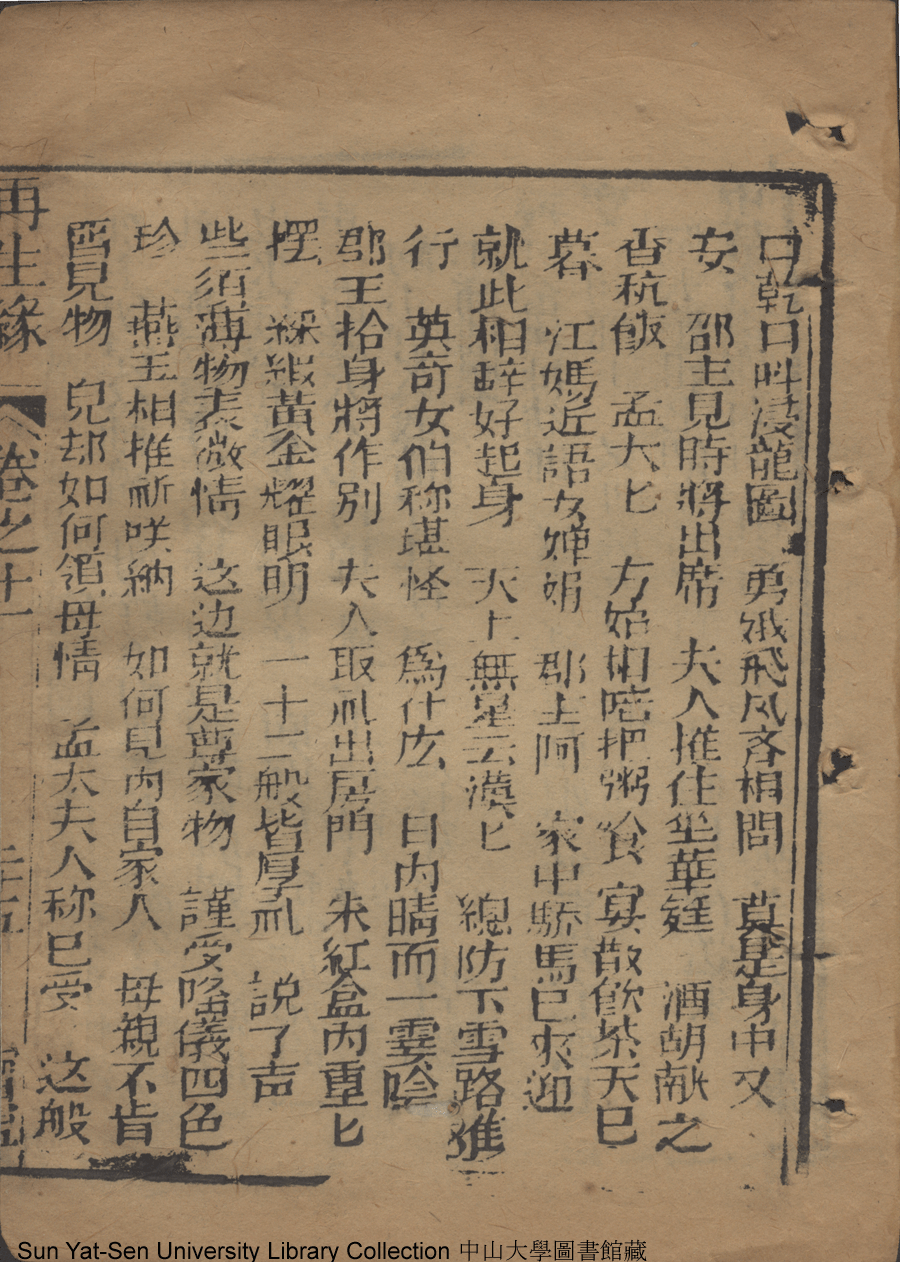 口乾口叫浸龍圖　勇娥飛凤齐相問　莫是身中又
安　邵主見時將出席　夫人推住坐華廷　酒胡献之
香秔飯　孟大匕　方始相陪把粥飡　宴散飲茶天已
暮　江媽近語女婵娟　郡主阿　家中驕馬已來迎
就此相辞好起身　天上無星云漠匕　總防下雪路难
行　英奇女伯称堪怪　爲什庅　日内晴而一霎陰
郡王拾身將作别　夫人取礼出房門　朱紅盒内重匕
摆　綵緞黃金耀眼明　一十二般皆厚礼　説了声
些須薄物表微情　这边就是尊家物　謹受陰儀四色
珍　燕玉相推祈咲納　如何見內自家人　母親不肯
畱見物　兒却如何領母情　孟太夫人称已受　这般
再生緣　卷之十一　二十五
Sun Yat-Sen University Library Collection 中山大學圖書館藏